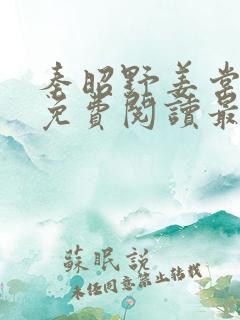 秦昭野姜棠
免費閱讀最
蘇眠說
未经同意禁止转载